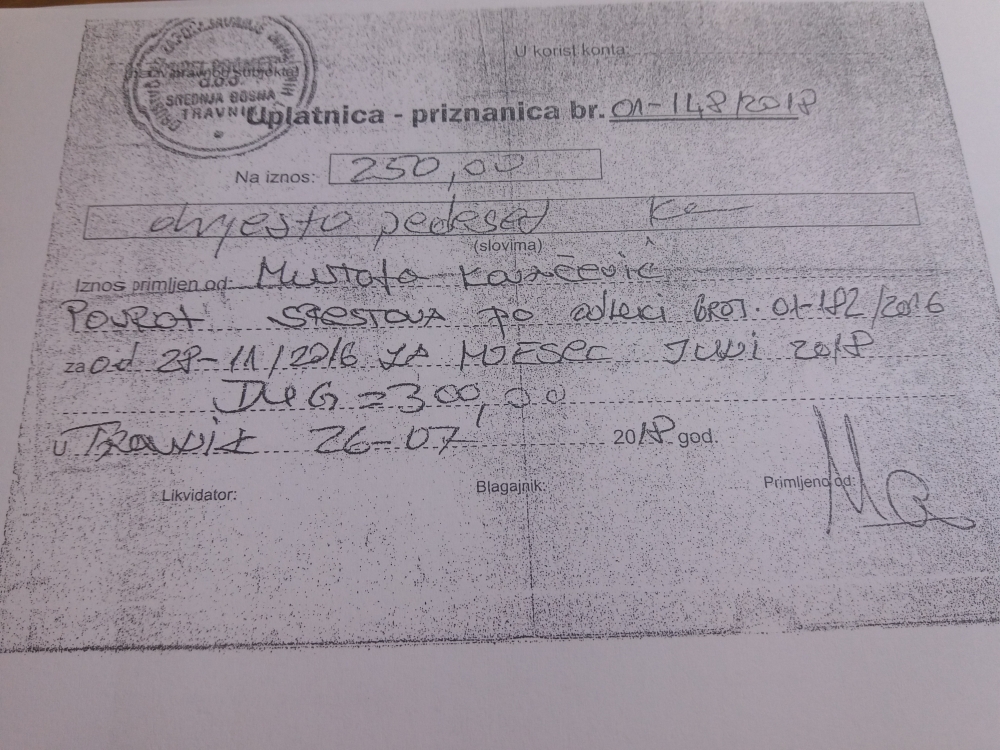 U korist konta:
d.o.o.
SREDNJA BOSNA
TRAVNIK
Uplatnica - priznanica br. 01-148/2018
Na iznos: 250,00
dvjesto pedeset
(slovima)
Iznos primljen od: Mustafa
POVRAT SREDSTAVA po odluci BROJ. 01-182/2016
za od 28-11/2016 ZA MJESEC JUNI 2018
DUG = 300,00
u Travnik 26-07 2018 god.
Likvidator: Blagajnik: Primljeno od: